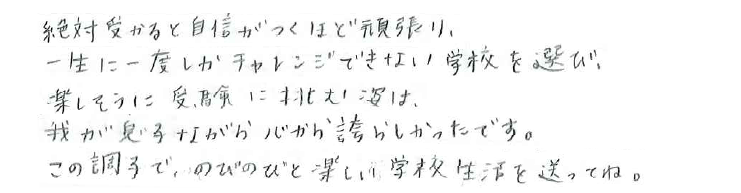 絶対受かると自信がつくほど頑張り、
一生に一度しかチャレンジできない学校を選び、
楽しそうに受験に挑む姿は、
我が息子ながら心から誇らしかったです。
この調子で、のびのびと楽しい学校生活を送ってね。